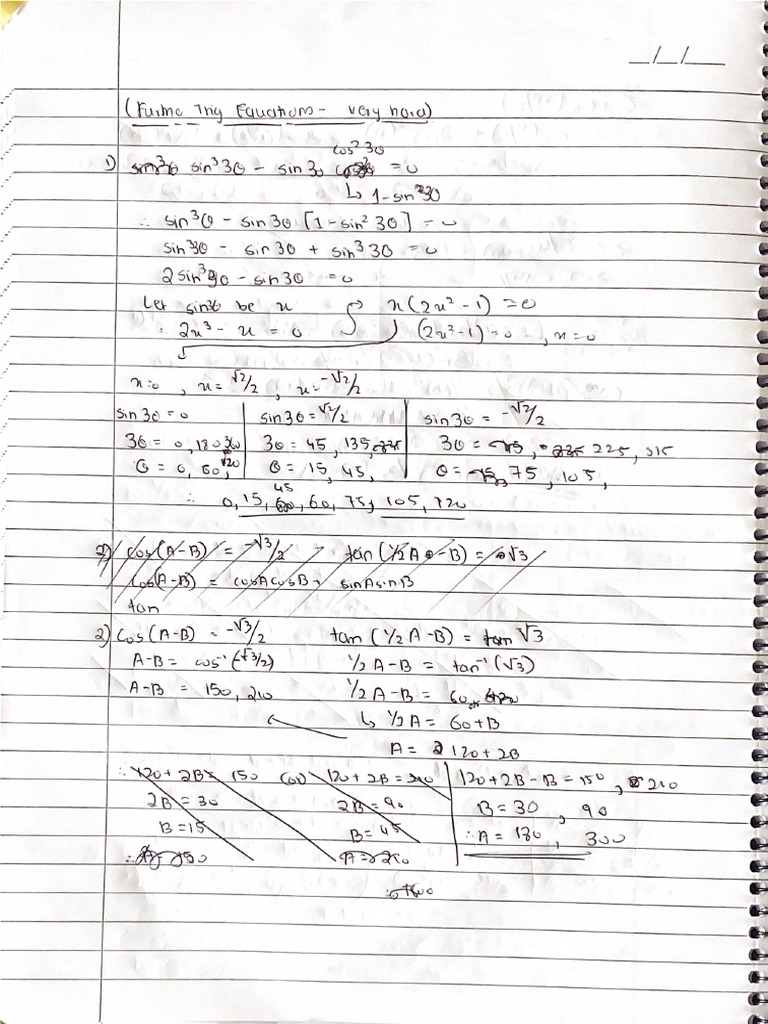 _/_/__
(Further Trig Equations - very hard)
1) sin³3θ - sin 3θ cos²3θ = 0
↳ 1 - sin²3θ
∴ sin³θ - sin 3θ [1 - sin² 3θ] = 0
sin³3θ - sin 3θ + sin³ 3θ = 0
2sin³3θ - sin 3θ = 0
Let sin3θ be x
x(2x² - 1) = 0
∴ 2x³ - x = 0
(2x² - 1) = 0, x = 0
x = 0, x = √2/2, x = -√2/2
sin 3θ = 0
3θ = 0, 180, 360
θ = 0, 60, 120
sin3θ = √2/2
3θ = 45, 135,
θ = 15, 45,
sin 3θ = -√2/2
3θ = 225, 315
θ = 75, 105,
∴ 0, 15, 45, 60, 75, 105, 120
2) cos(A-B) = -√3/2 tan(½A - B) = √3
cos(A-B) = cosAcosB + sinAsinB
tan
2) cos(A-B) = -√3/2 tan(½A-B) = √3
A-B = cos⁻¹(-√3/2) ½A-B = tan⁻¹(√3)
A-B = 150, 210 ½A-B = 60
↳ ½A = 60+B
A = 120+2B
∴ 120 + 2B = 150 (or) 120 + 2B = 210
2B = 30 2B = 90
B = 15 B = 45
∴ A = 150 A = 210
120+2B-B = 150, 210
B = 30, 90
∴ A = 180, 300